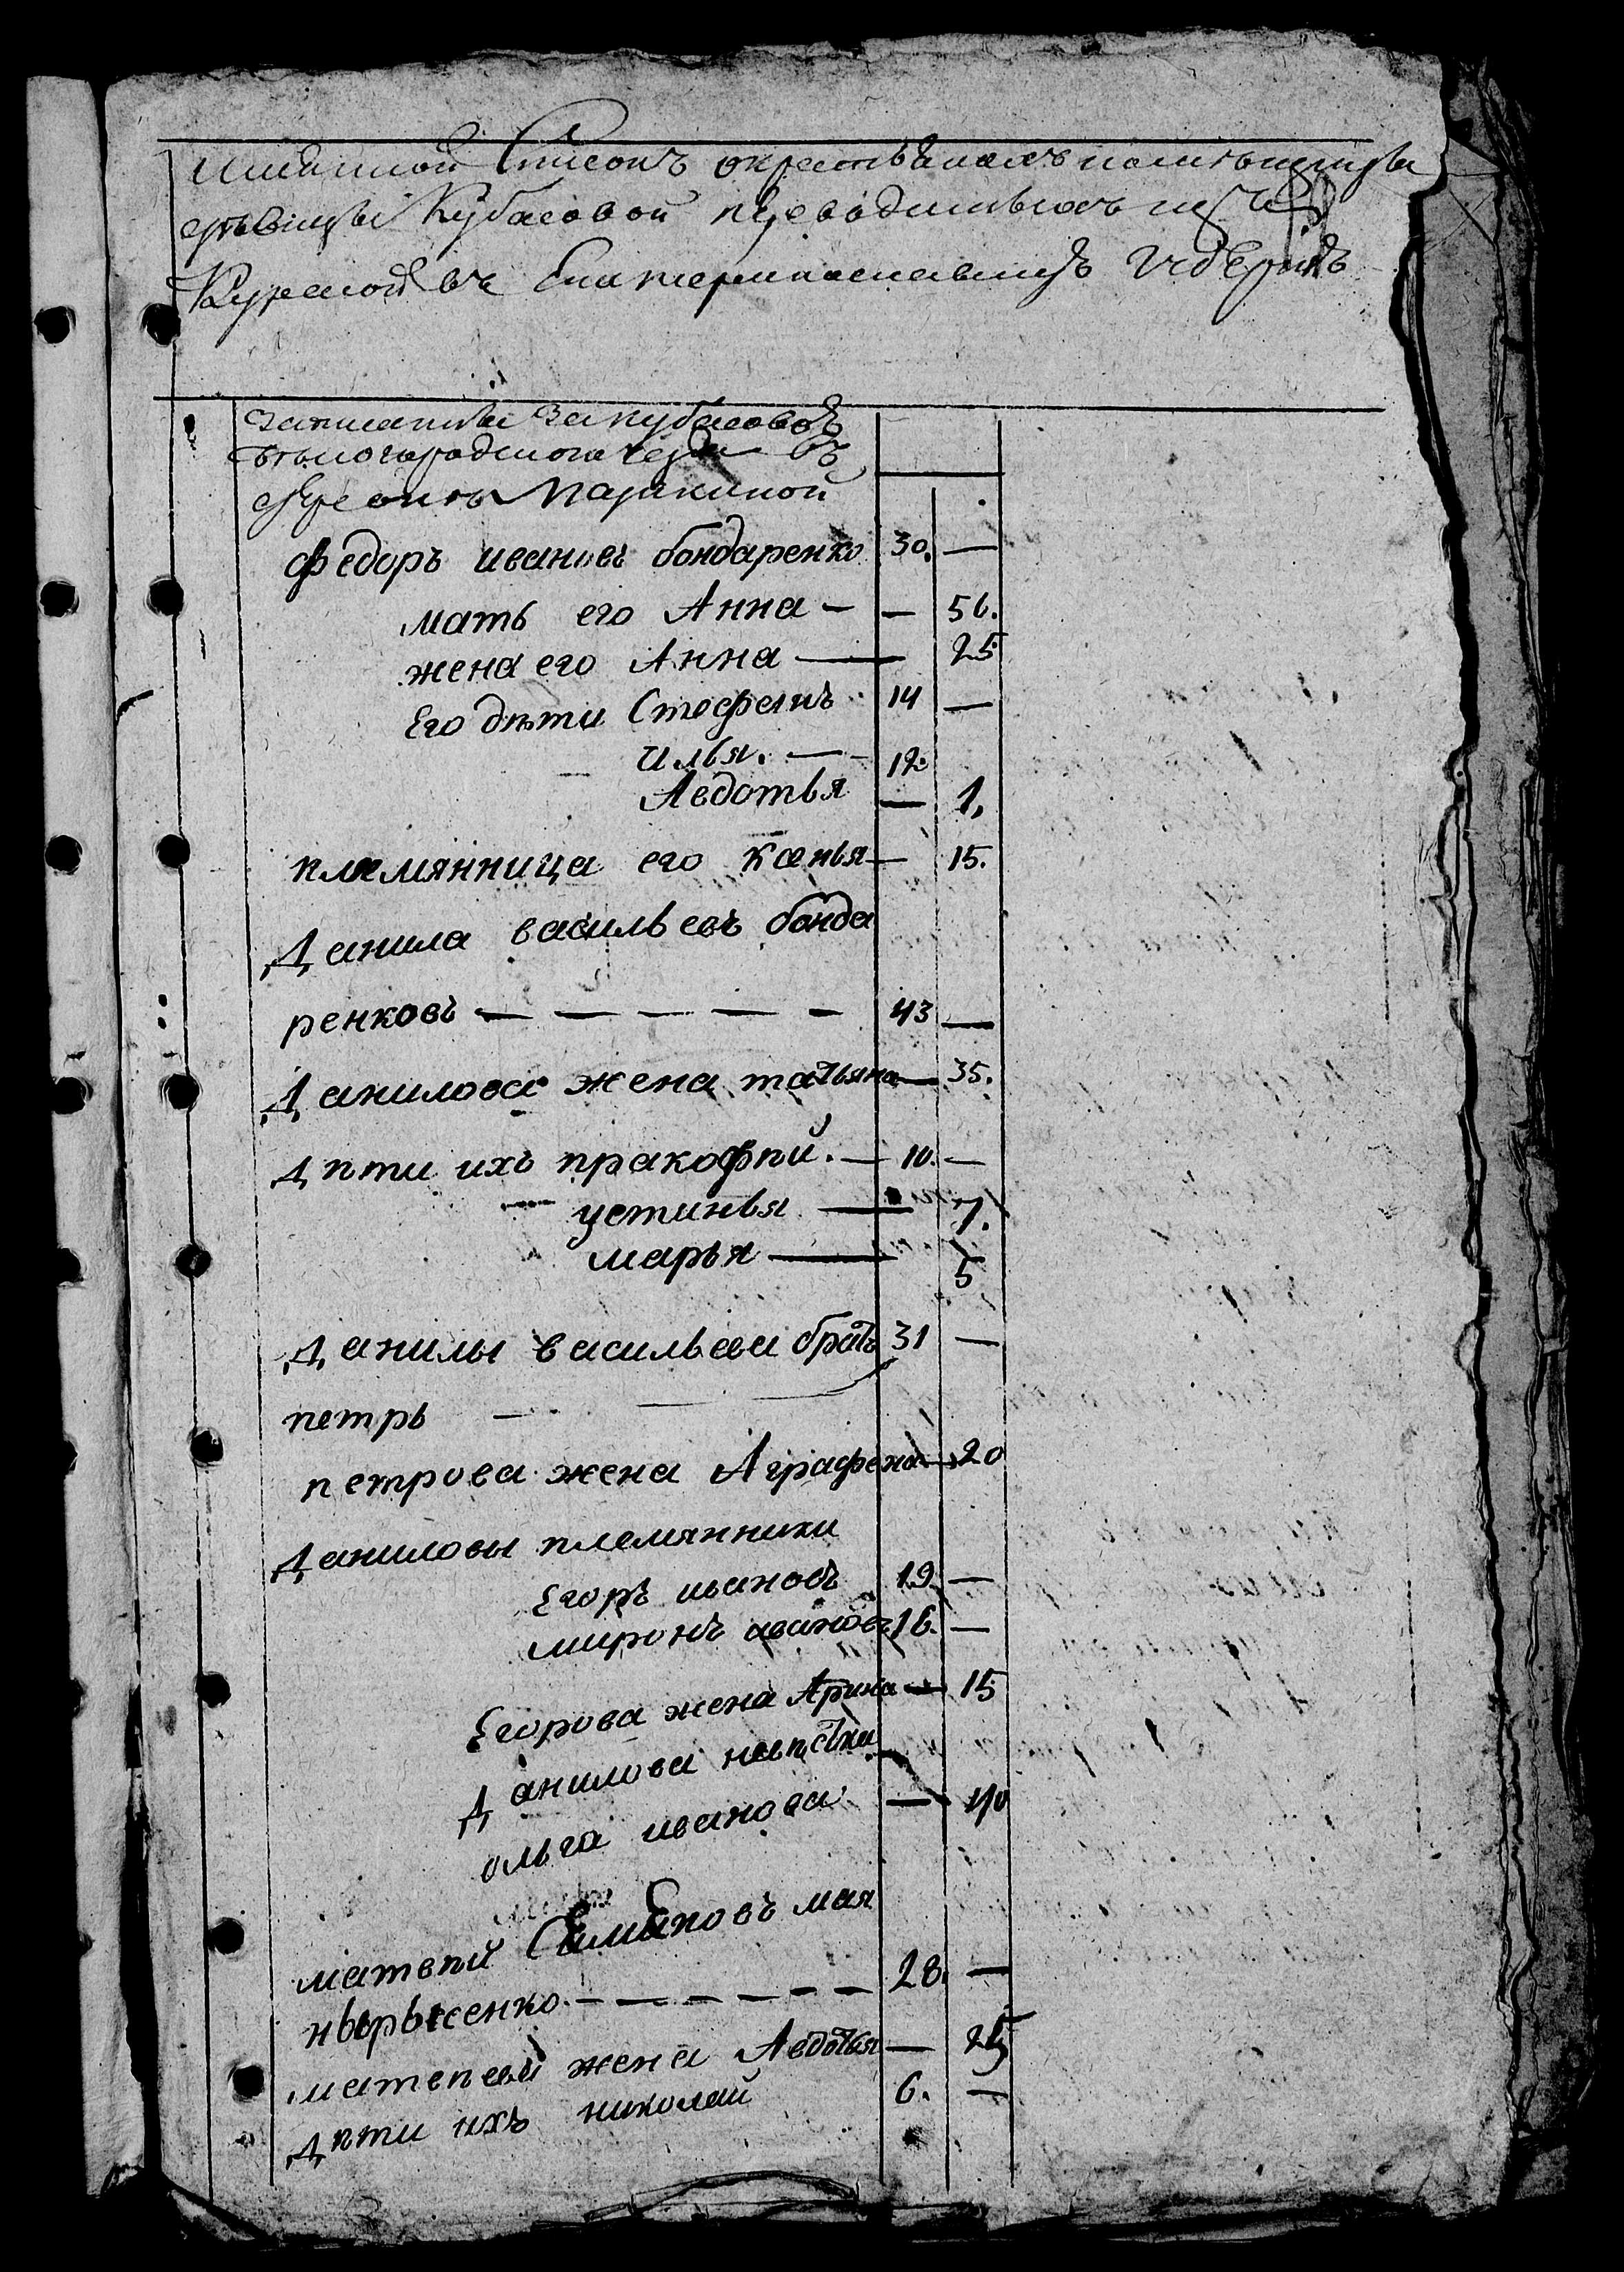 Имянной Списокъ окрестьянахъ помещицы
девицы Кубасовой переводимыхъ изъ
Курской въ Екатеринославскую Губернию
записанные за кубасовой
белогородского уезда въ
деревне
Федоръ ивановъ бондаренко 30. —
мать его Анна — — 56.
жена его Анна — 25
Его дѣти Стефанъ 14 —
илья. — 12.
Авдотья — 1.
племянница его Ксенья — 15.
Данила васильевъ бонда
ренковъ — — — — — 43 —
Данилова жена татьяна — 35.
Дѣти ихъ пракофѣй. — 10. —
устинья — 7.
марья — 5
Данилы васильева братъ 31 —
петръ —
петрова жена Аграфена — 20
Даниловы племянники
Егоръ ивановъ 19. —
миронъ ивановъ 16. —
Егорова жена Арина — 15
Данилова невѣстка
ольга иванова — 40
матвѣй Семеновъ мая
нырысенко. — — — — — — 28. —
матвѣева жена Авдотья — 25
Дѣти ихъ николай 6. —